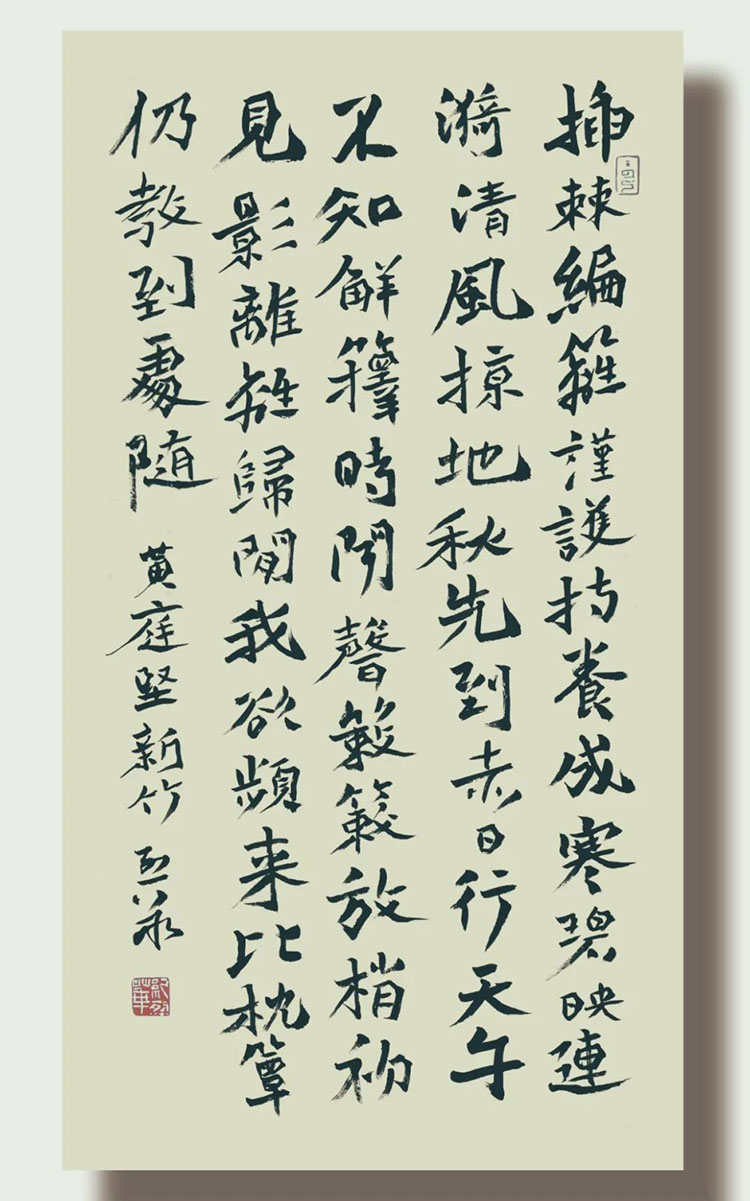 插棘編籬謹護持養成寒碧映連
漪清風掠地秋先到赤日行天午
不知解籜時聞聲簌簌放梢初
見影離離歸閒我欲頻来比枕簟
仍教到處随 黄庭堅新竹